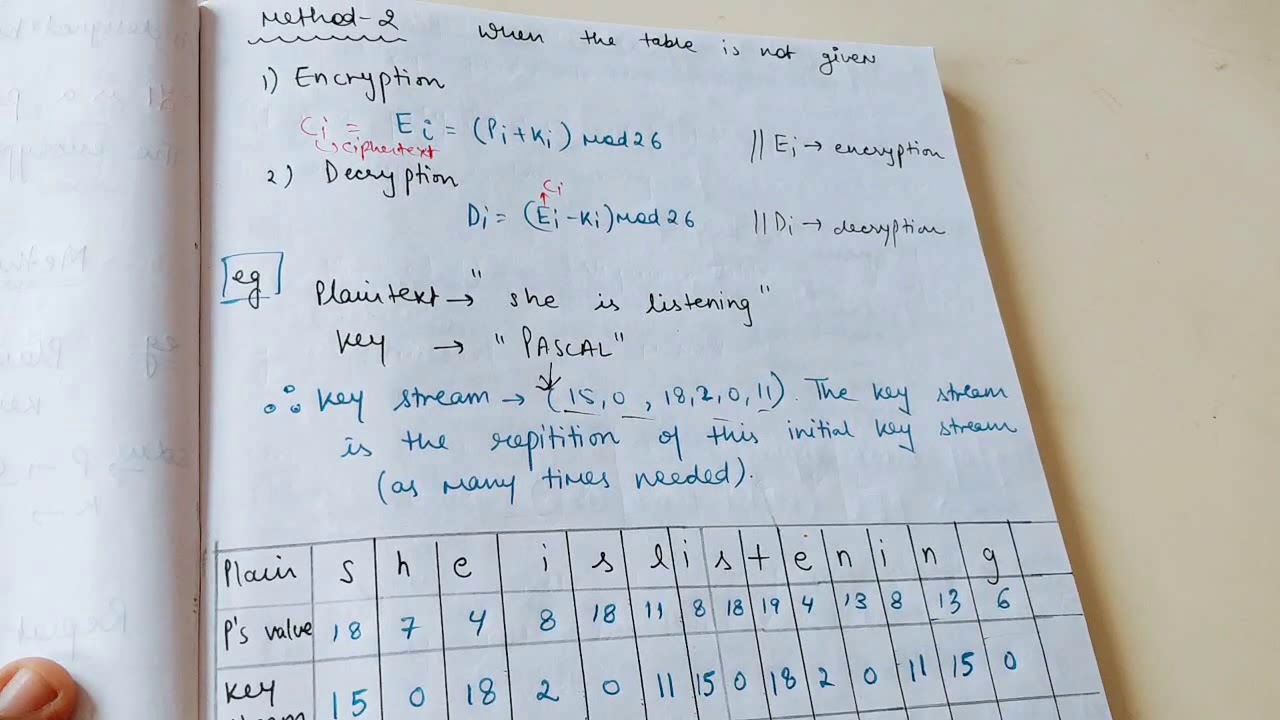 Method-2 when the table is not given
1) Encryption
Ci = Ei = (Pi + Ki) mod 26 // Ei → encryption
ciphertext
2) Decryption
Ci
Di = (Ei - Ki) mod 26 // Di → decryption
eg
Plaintext → "she is listening"
Key → "PASCAL"
∴ Key stream → (15, 0, 18, 2, 0, 11). The key stream
is the repitition of this initial key stream
(as many times needed).
Plain s h e i s l i s t e n i n g
P's value 18 7 4 8 18 11 8 18 19 4 13 8 13 6
Key 15 0 18 2 0 11 15 0 18 2 0 11 15 0